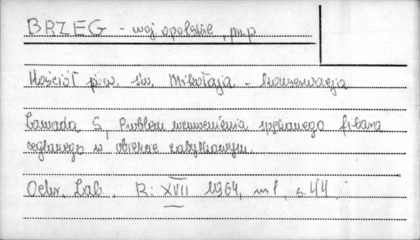 BRZEG - woj. opolskie, pmp
Kościół p.w. św. Mikołaja - konserwacja
Zawada S., Problem wzmocnienia spękanego filara
ceglanego w obiekcie zabytkowym.
Ochr. Zab. R: XVII 1964, nr 1, s. 44.